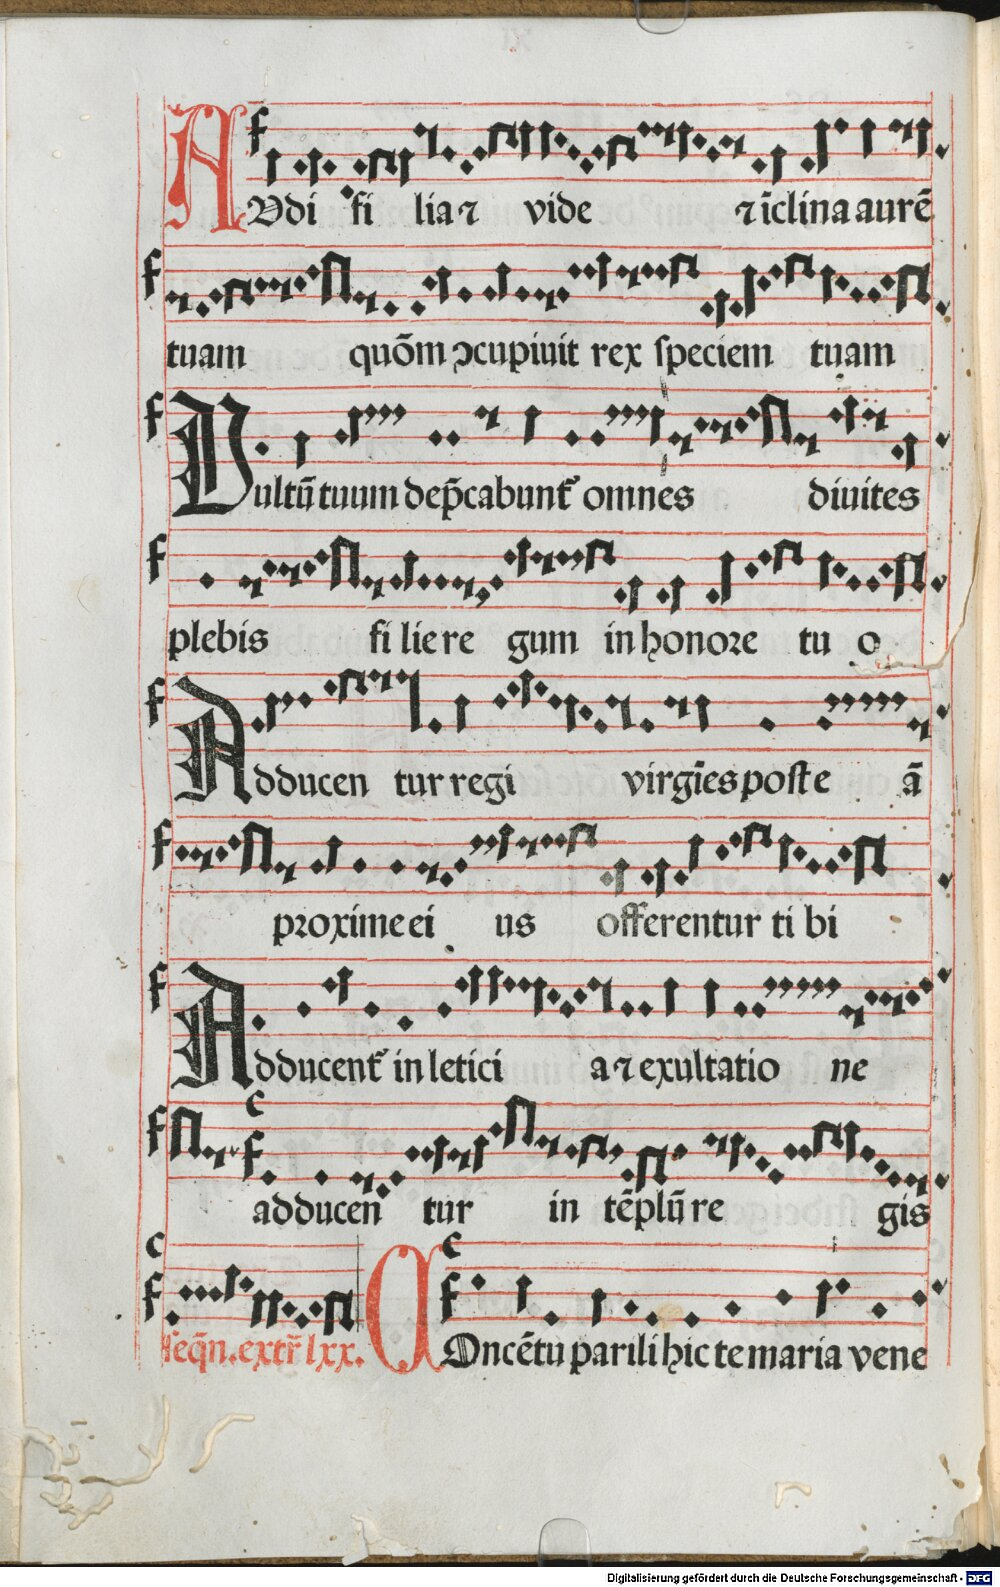 AUdi fi lia ⁊ vide ⁊ īclina aurē
tuam quōm ↄcupiuit rex speciem tuam
Vultū tuum dep̄cabunt᷑ omnes diuites
plebis fi lie re gum in honore tu o
Adducen tur regi virgīes post e ā
proxime ei us offerentur ti bi
Adducent᷑ in letici a ⁊ exultatio ne
adducen tur in tēplū re gis
seq̄n. extr̄ lxx. COncētu parili hic te maria vene
Digitalisierung gefördert durch die Deutsche Forschungsgemeinschaft - DFG